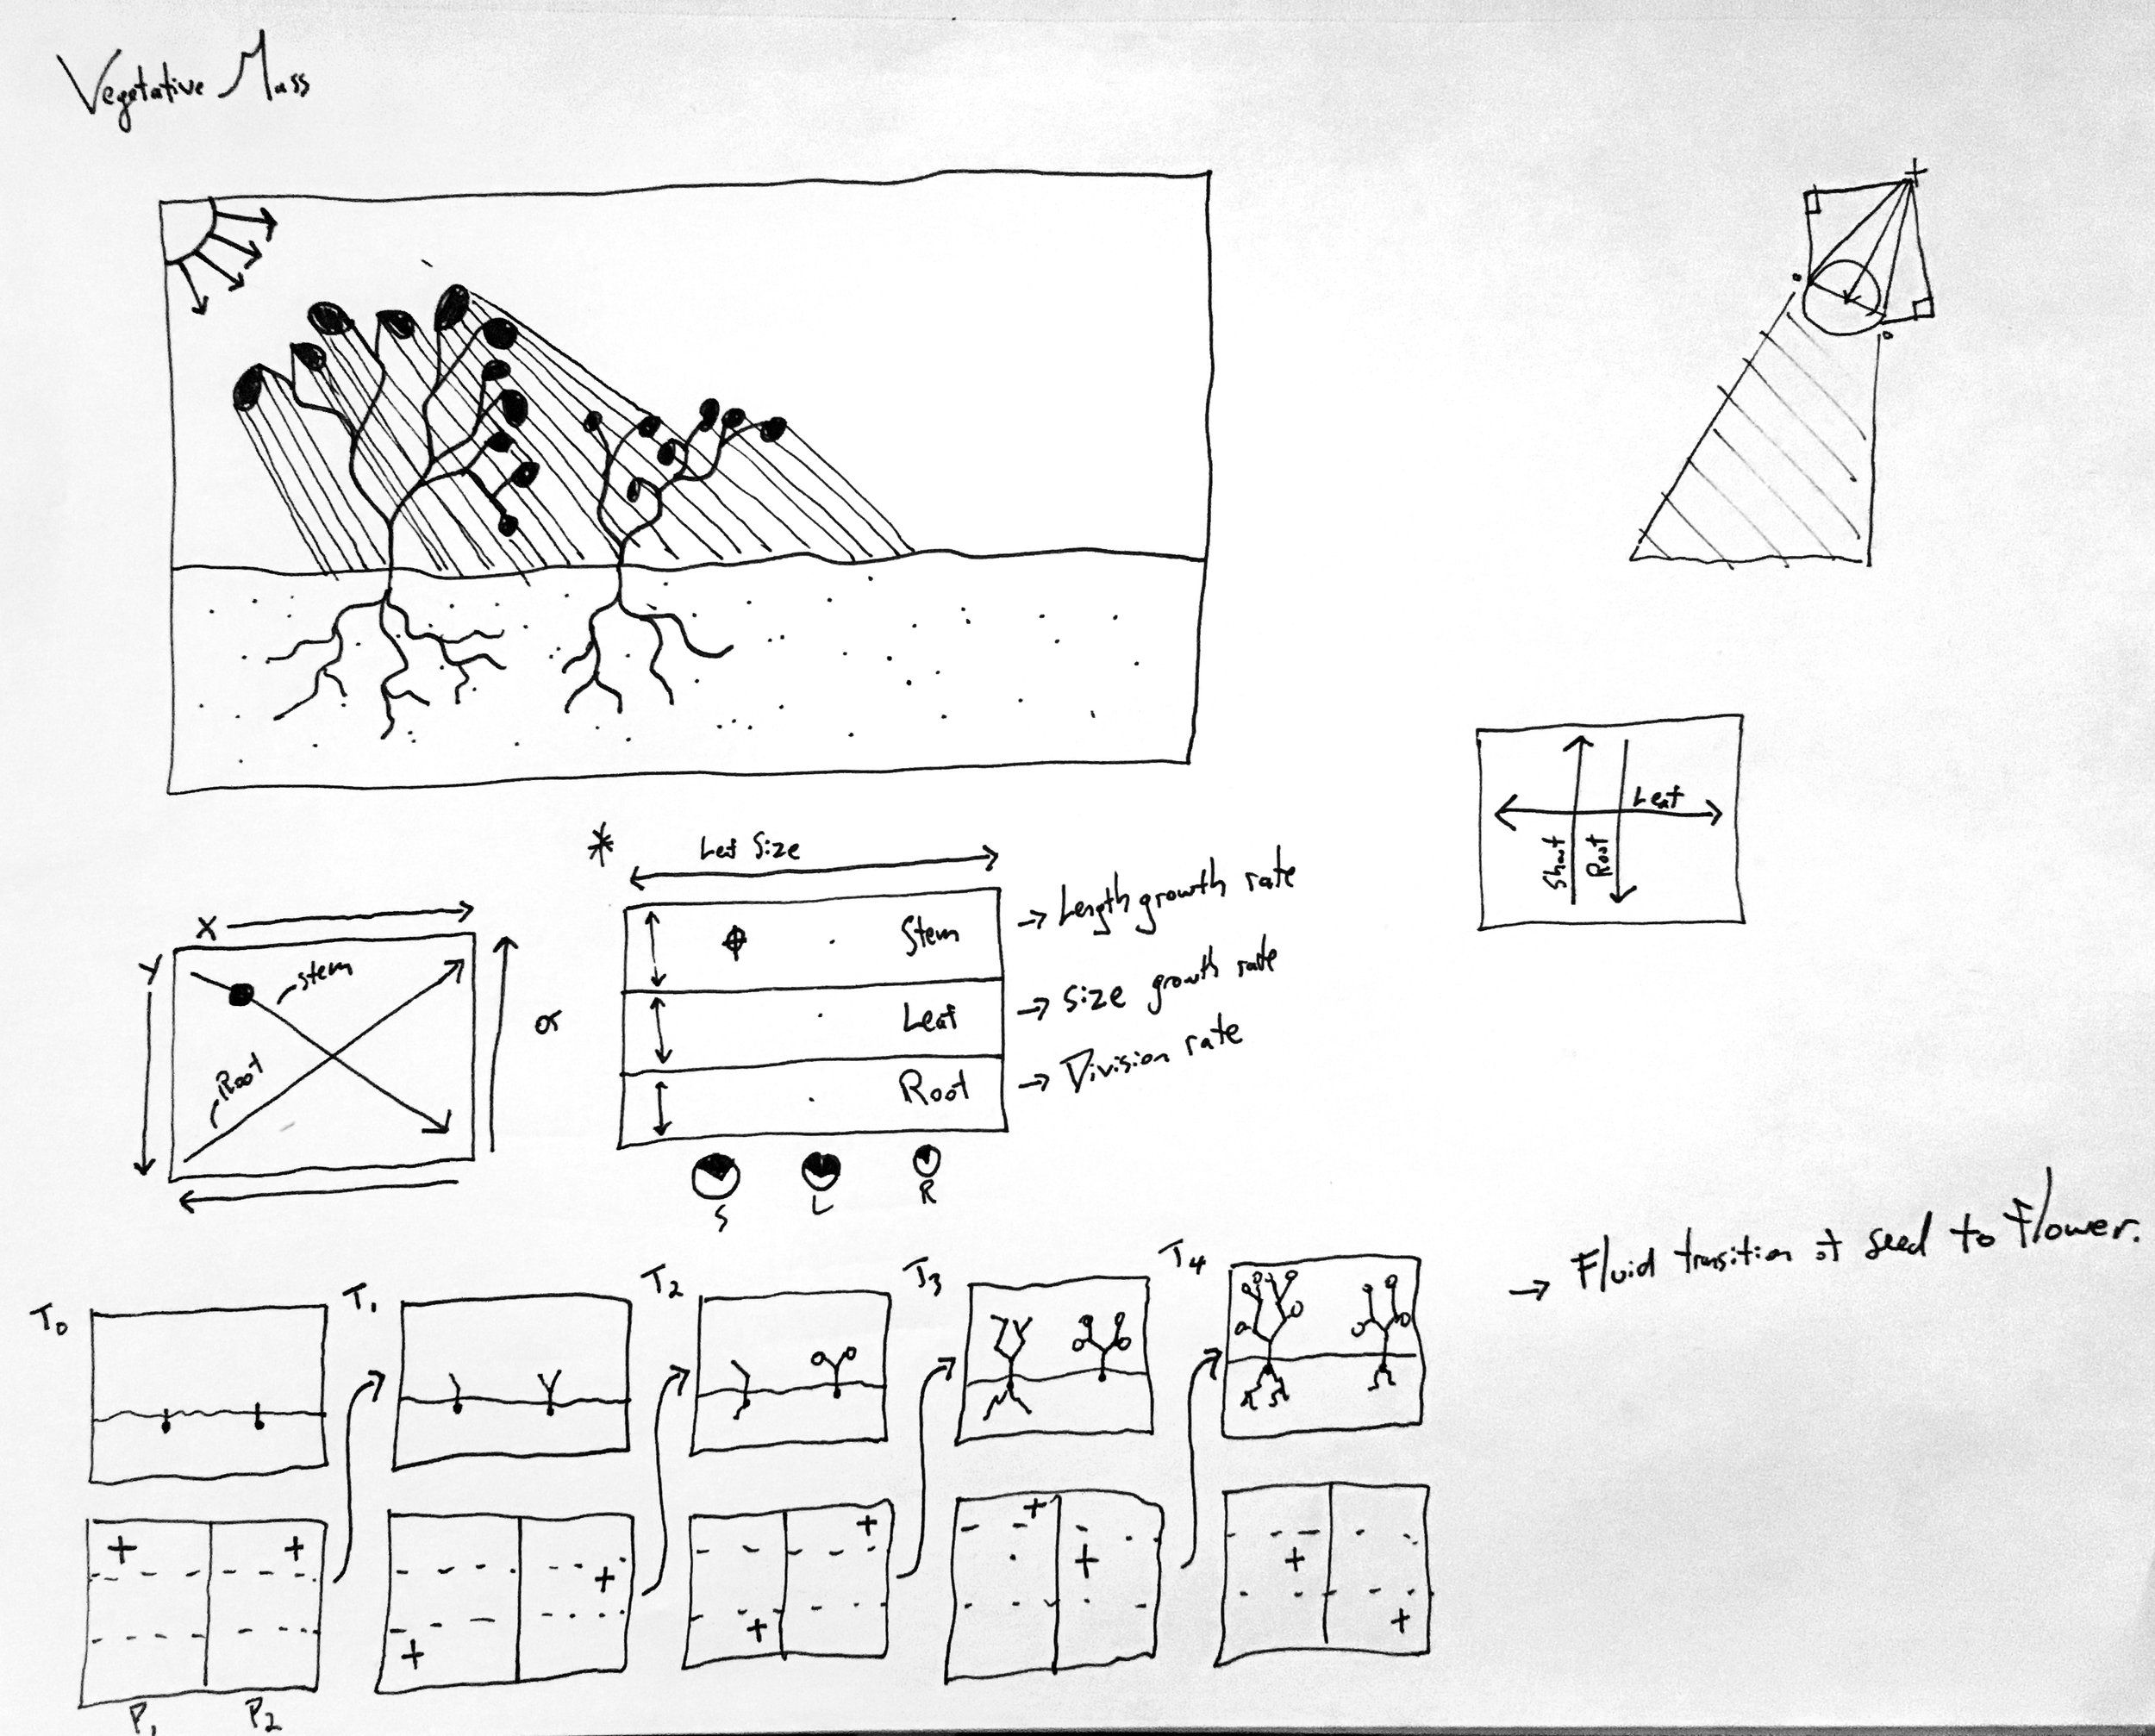 Vegetative Mass
Leaf
Shoot
Root
* Leaf Size
X
Y
stem
Root
or
Stem → Length growth rate
Leaf → Size growth rate
Root → Division rate
S L R
T0 T1 T2 T3 T4
→ Fluid transition of seed to Flower.
P1 P2